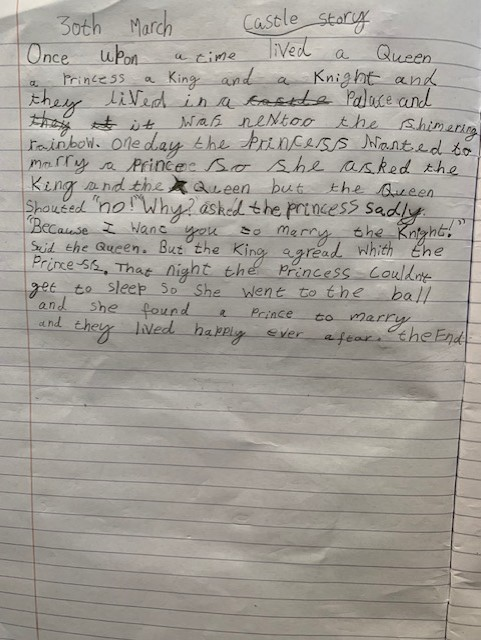 30th March Castle story
Once upon a time lived a Queen
a Princess a King and a Knight and
they liVed in a castle Palace and
they it it was neNtoo the shimering
rainbow. one day the princess wanted to
marry a prince so she asked the
King and the Queen but the Queen
shouted "no!" Why? asked the princess sadly.
"Because I want you to marry the Knight!"
Said the Queen. But the King agread whith the
Princess. That night the Princess couldnt
get to sleep so she went to the ball
and she found a Prince to marry
and they lived happly ever after. the End